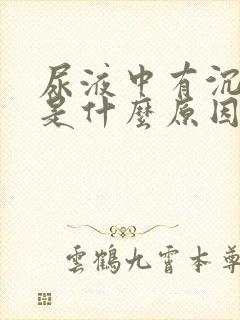 尿液中有沉
是什麼原因
雲鶴九霄本尊